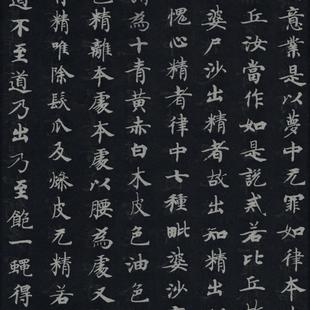 意業是以夢中无罪如律本
丘汝當作如是說戒若比丘故
婆尸沙出精者故出知精
愧心精者律中七種毗婆沙
為十青黃赤白木皮色油色
色精離本處本處以腰為處又
精唯除髮爪及燥皮无精若
不至道乃出乃至飽一蠅得